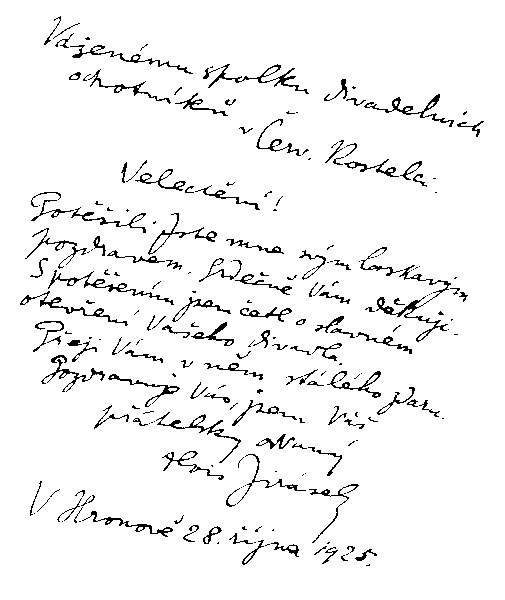 Váženému spolku divadelních
ochotníků v Červ. Kostelci.
Velectění!
Potěšili jste mne svým laskavým
pozdravem. Srdečně Vám děkuji.
S potěšením jsem četl o slavném
otevření Vašeho divadla.
Přeji Vám v něm stálého zdaru.
Pozdravuje Vás, jsem Váš
přátelsky oddaný
Alois Jirásek
V Hronově 28. října 1925.